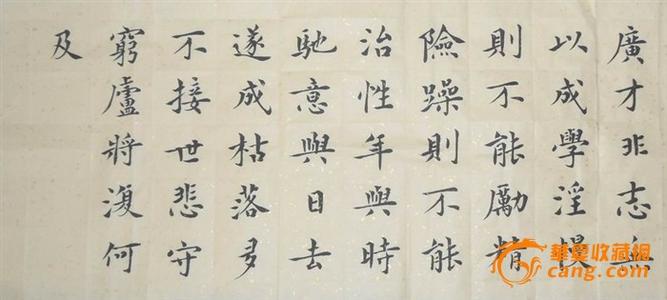 廣才非志無
以成學淫慢
則不能勵精
險躁則不能
治性年與時
馳意與日去
遂成枯落多
不接世悲守
窮廬將復何
及
華夏收藏網
cang.com